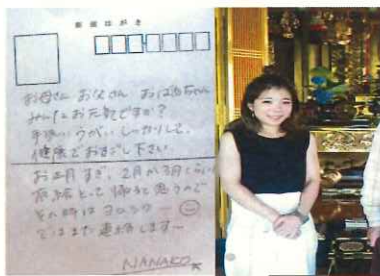 郵便はがき
お母さん お父さん おばあちゃん
みんなお元気ですか?
手洗い うがい しっかりして、
健康でおすごし下さい。
お正月すぎ、2月か3月くらいに
有給とって帰ろと思うので
その時はヨロシクー
ではまた連絡します〜
NANAKO